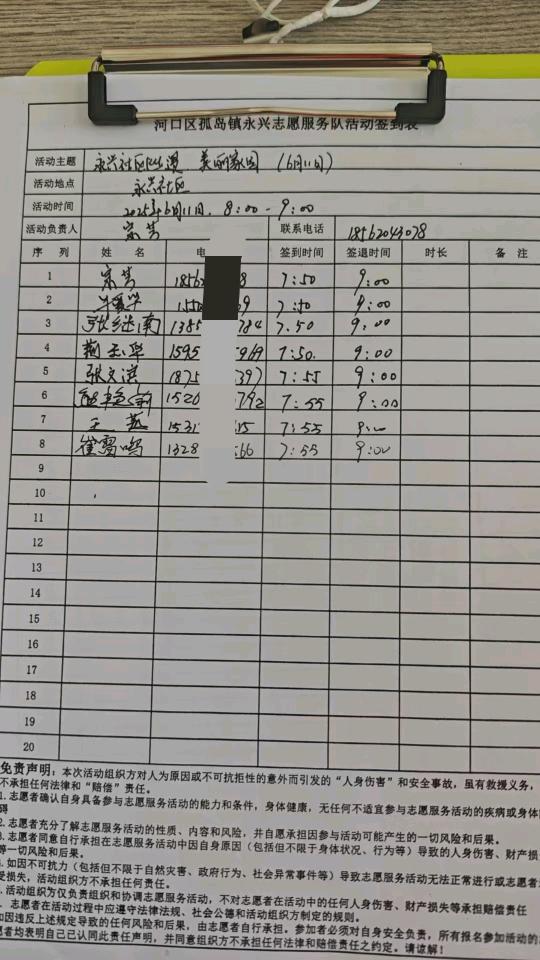 河口区孤岛镇永兴志愿服务队活动签到表
活动主题 永兴社区 美丽家园 (6月11日)
活动地点 永兴社区
活动时间 6月11日. 8:00-9:00
活动负责人 宗芳 联系电话 18562043078
序 列 姓 名 电 签到时间 签退时间 时长 备 注
1 宗芳 1856 8 7:50 9:00
2 1550 9 7:50 9:00
3 张继南 1385 784 7.50 9:00
4 荆玉华 1595 919 7:50. 9:00
5 张文洪 1875 397 7:55 9:00
6 1520 792 7:55 9:00
7 王 1531 15 7:55 9:00
8 崔雪鸣 1328 66 7:55 9:00
9
10
11
12
13
14
15
16
17
18
19
20
免责声明：本次活动组织方对人为原因或不可抗拒性的意外而引发的“人身伤害”和安全事故，虽有救援义务，
不承担任何法律和“赔偿”责任。
1.志愿者确认自身具备参与志愿服务活动的能力和条件，身体健康，无任何不适宜参与志愿服务活动的疾病或身体
碍
2.志愿者充分了解志愿服务活动的性质、内容和风险，并自愿承担因参与活动可能产生的一切风险和后果。
3.志愿者同意自行承担在志愿服务活动中因自身原因（包括但不限于身体状况、行为等）导致的人身伤害、财产损
等一切风险和后果。
.如因不可抗力（包括但不限于自然灾害、政府行为、社会异常事件等）导致志愿服务活动无法正常进行或志愿者
受损失，活动组织方不承担任何责任。
.活动组织方仅负责组织和协调志愿服务活动，不对志愿者在活动中的任何人身伤害、财产损失等承担赔偿责任
. 志愿者在活动过程中应遵守法律法规、社会公德和活动组织方制定的规则。
如因违反上述规定导致的任何风险和后果，由志愿者自行承担。参加者必须对自身安全负责，所有报名参加活动的
愿者均表明自己已认同此责任声明，并同意组织方不承担任何法律和赔偿责任之约定。请谅解！